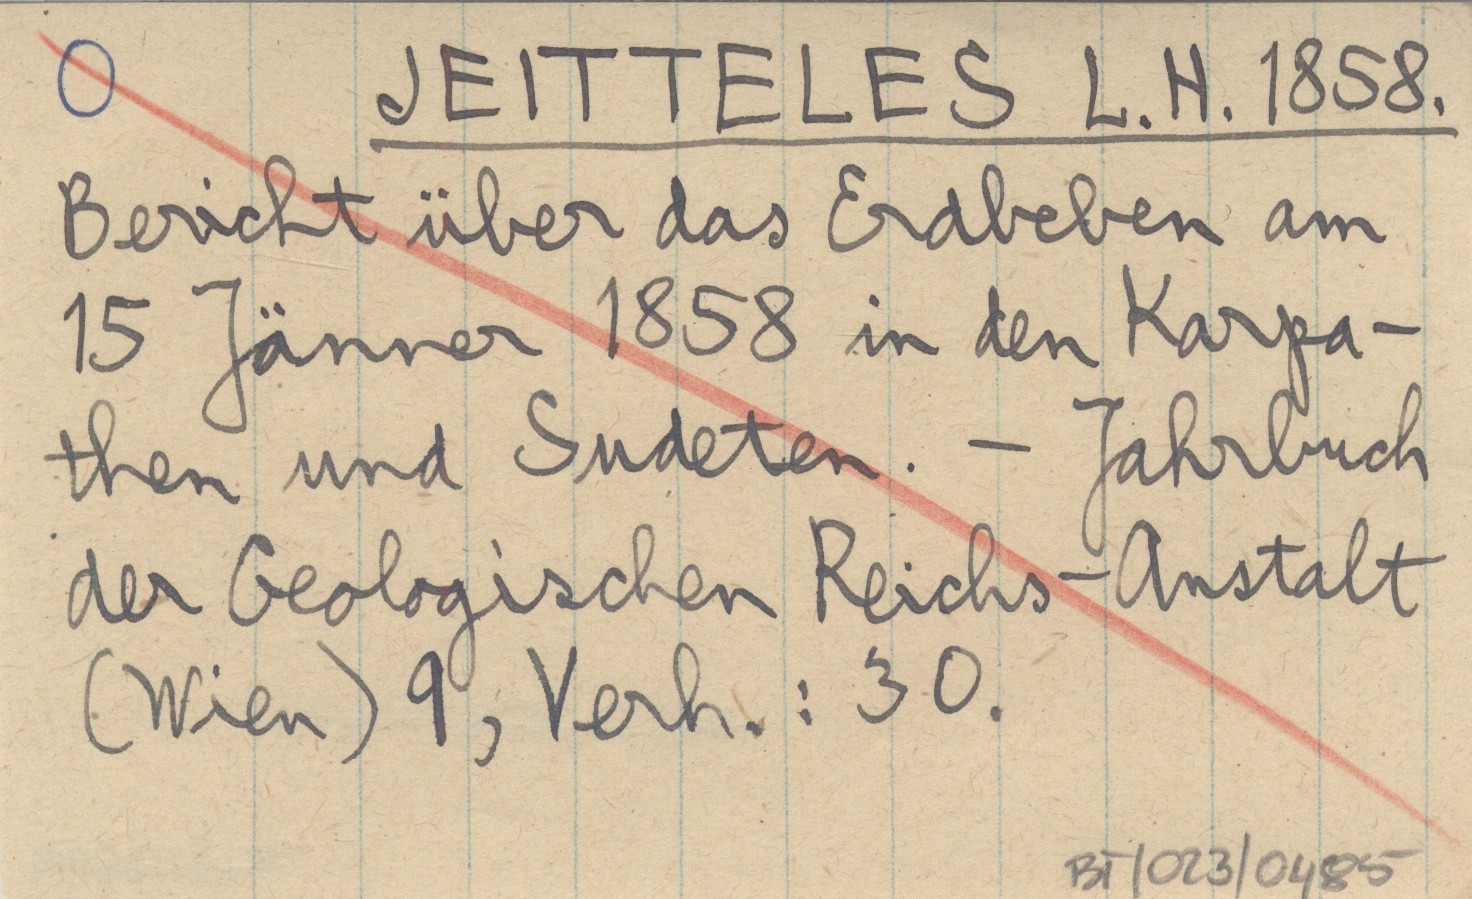 O JEITTELES L.H. 1858.
Bericht über das Erdbeben am
15 Jänner 1858 in den Karpa-
then und Sudeten. - Jahrbuch
der Geologischen Reichs-Anstalt
(Wien) 9, Verh. : 30.
BT/023/0485